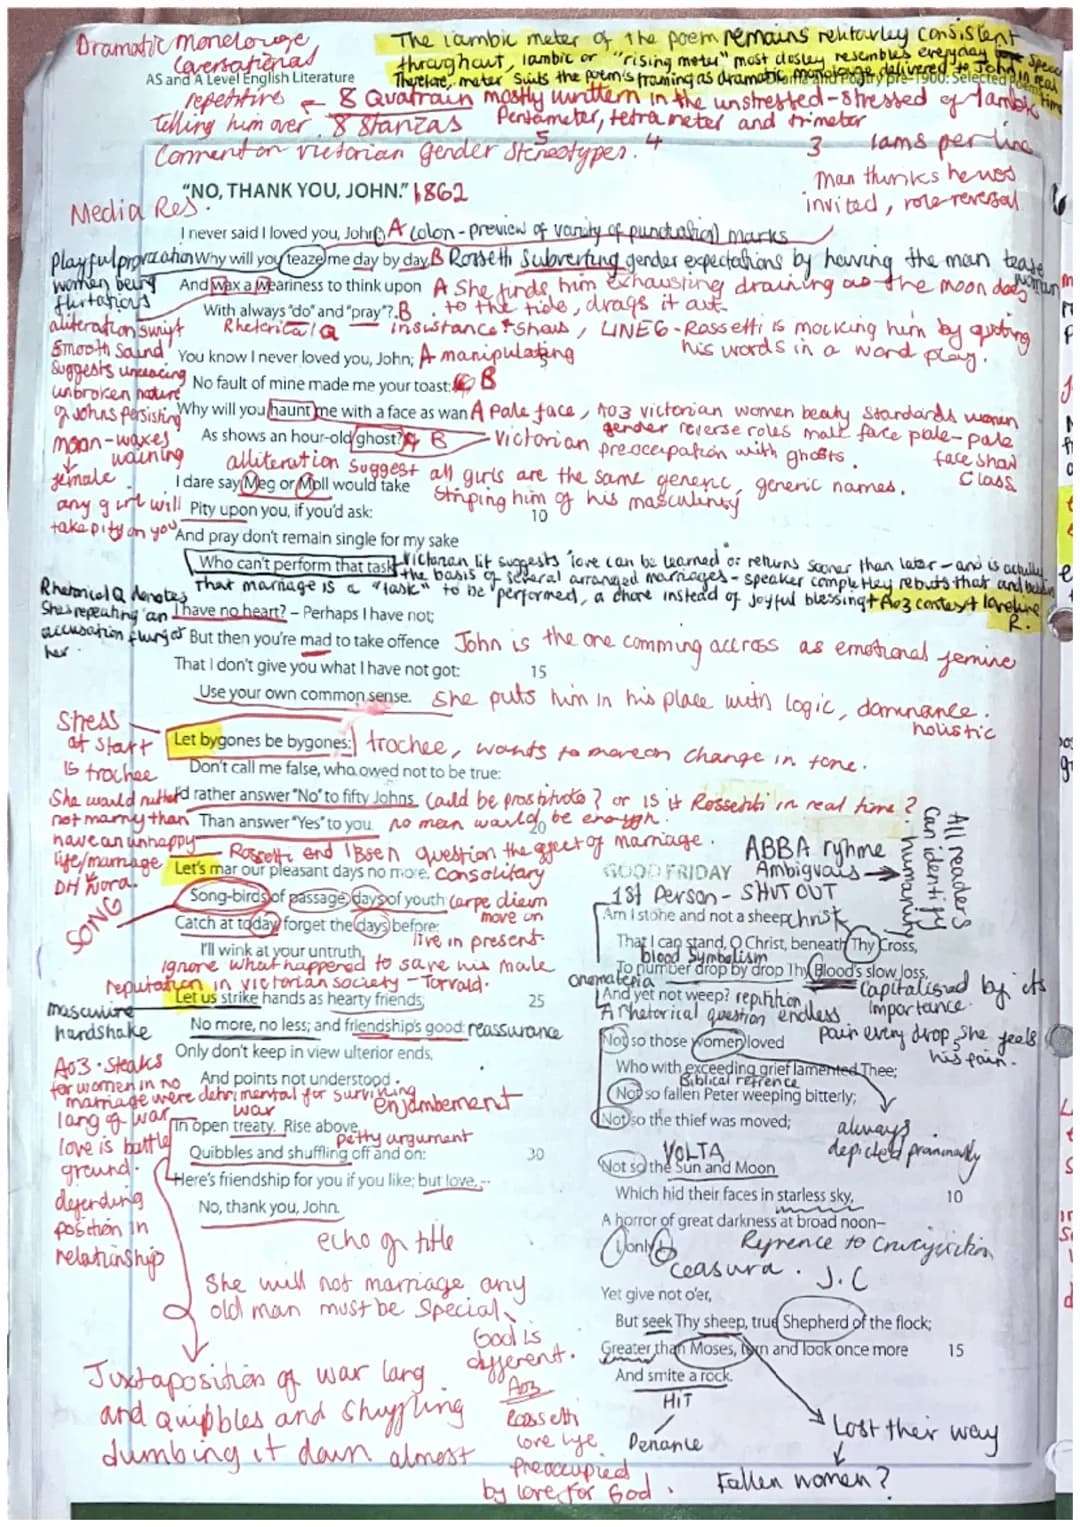 Dramatic monelouge
Coversational
The iambic meter of the poem remains relitavley consistent
throughout, iambic or "rising meter" most closley resembles everyday speec
Therefore, meter suits the poem's framing as dramatic monologue delivered to John in real time
AS and A Level English Literature
Drama and Poetry pre-1900: Selected Poems
repetitive - 8 Quatrain mostly written in the unstressed-stressed of Iambic
telling him over. 8 Stanzas Pentameter, tetrameter and trimeter
5 4 3 Iams per line
Comment on Victorian gender Stereotypes.
man thinks he was
invited, role reversal
"NO, THANK YOU, JOHN." 1862
Media Res.
I never said I loved you, John: A Colon - preview of variety of punctuation marks
Playful provocation
women being
flirtatious
Why will you teaze me day by day, B Rossetti Subverting gender expectations by having the man tease woman
And wax a weariness to think upon A She finds him exhausting draining as the moon does
to the tide, drags it out.
With always "do" and "pray"? B
Rhetorical Q insistance
LINE 6 - Rossetti is mocking him by quoting
his words in a word play.
aliteration swift
smooth sound
suggests unceasing
unbroken nature
of Johns persisting
moon - waxes
wanning
female
You know I never loved you, John; A manipulating
No fault of mine made me your toast: B
Why will you haunt me with a face as wan A Pale face, AO3 victorian women beauty standards women
gender reverse roles male face pale - pale
face show
class
As shows an hour-old ghost? B Victorian preoccupation with ghosts.
alliteration suggest all girls are the same generic, generic names.
Striping him of his masculinity
I dare say Meg or Moll would take
any girl will
take pity on you
Pity upon you, if you'd ask:
10
And pray don't remain single for my sake
Who can't perform that task. Victorian lit suggests "love can be learned" or returns sooner than later - and is actually
the basis of several arranged marriages - speaker completley rebuts that and
that marriage is a "task" to be performed, a chore instead of joyful blessing + AO3 context love life
R.
Rhetorical Q denotes
She's repeating an
accusation flung at
her.
I have no heart? – Perhaps I have not;
But then you're mad to take offence John is the one comming across as emotional femine
That I don't give you what I have not got:
15
Use your own common sense. She puts him in his place with logic, dominance.
holistic
Stress
at start
is trochee
Let bygones be bygones: trochee, wants to move on change in tone.
Don't call me false, who owed not to be true:
I'd rather answer "No" to fifty Johns Could be prostitute? or is it Rossetti in real time?
She would rather
not marry than
have an unhappy
life/marriage
DH Nora.
Than answer "Yes" to you. no man would be enough.
20
Rossetti and Ibsen question the effect of marriage.
Let's mar our pleasant days no more, Consolitary
SONG
Song-birds of passage, days of youth: Carpe diem
move on
Catch at today, forget the days before:
live in present.
I'll wink at your untruth.
ignore what happened to save his male
reputation in victorian society - Torvald.
Let us strike hands as hearty friends;
25
masculine
handshake
No more, no less; and friendship's good: reassurance
Only don't keep in view ulterior ends,
AO3 - Steaks
for women in no
marriage were detrimental for surviving
And points not understood.
enjambement
lang of war
love is battle
ground.
defending
position in
relationship
war
In open treaty. Rise above
petty argument
Quibbles and shuffling off and on:
30
Here's friendship for you if you like; but love,--
No, thank you, John.
echo of title
She will not marriage any
old man must be special.
Juxtaposition of war lang
and quibbles and shuffling
dumbing it down almost
God is
different.
AO3
Rossetti
love life.
Preoccupied
by love for God.
GOOD FRIDAY
ABBA ryhme
Ambiguous
All readers
Can identify
humanity
1st Person - SHUT OUT
Am I stone and not a sheep Christ
That I can stand, O Christ, beneath Thy Cross,
blood Symbolism
To number drop by drop Thy Blood's slow loss,
onomatepia
Capitalised by its
importance.
And yet not weep? repitition
A rhetorical question endless
pain every drop, she feels
his pain.
Not so those women loved
Who with exceeding grief lamented Thee;
Biblical refrence
Not so fallen Peter weeping bitterly;
Not so the thief was moved;
always
depicted
VOLTA
Not so the Sun and Moon
Which hid their faces in starless sky,
10
A horror of great darkness at broad noon–
I, only I.
Refrence to Crucifiction
J.C
Ceasura.
Yet give not o'er,
But seek Thy sheep, true Shepherd of the flock;
Greater than Moses, turn and look once more
15
And smite a rock.
HIT
Penance
Lost their way
Fallen women?